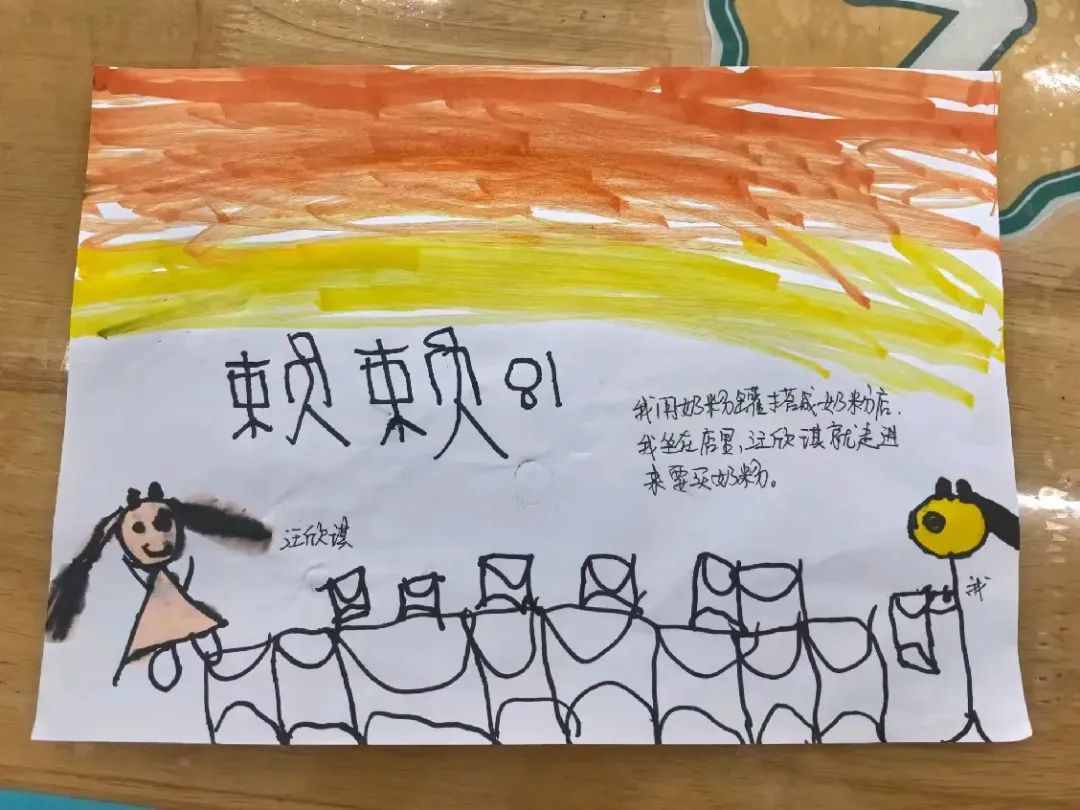 赖赖 81
我用奶粉罐搭成奶粉店.
我坐在店里,汪欣谋就走进
来要买奶粉。
汪欣谋
我